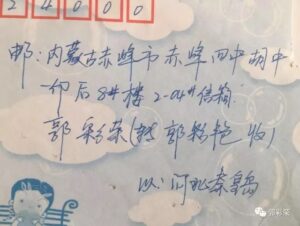 24000
邮：内蒙古赤峰市赤峰四中胡中
印后8#楼2-04#信箱
郭彩荣(转郭彩艳收)
以：河北秦皇岛
郭彩荣